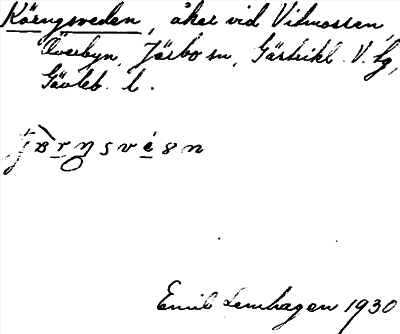 Körngsveden, åker vid Vidmossen
Överbyn, Järbo sn, Gästrikl. V. tg,
Gävleb. l.
Emil Lenhagen 1930